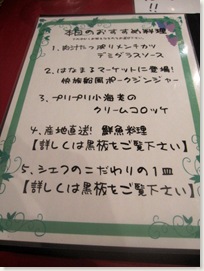 本日のおすすめ料理
1. 肉汁たっぷりメンチカツ
デミグラスソース
2. はなまるマーケットに登場!
ポークジンジャー
3. プリプリ小海老の
クリームコロッケ
4. 産地直送! 鮮魚料理
【詳しくは黒板をご覧下さい】
5. シェフのこだわりの1皿
【詳しくは黒板をご覧下さい】